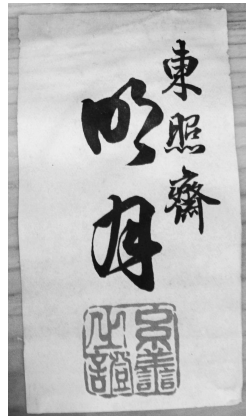 東照齋
明月